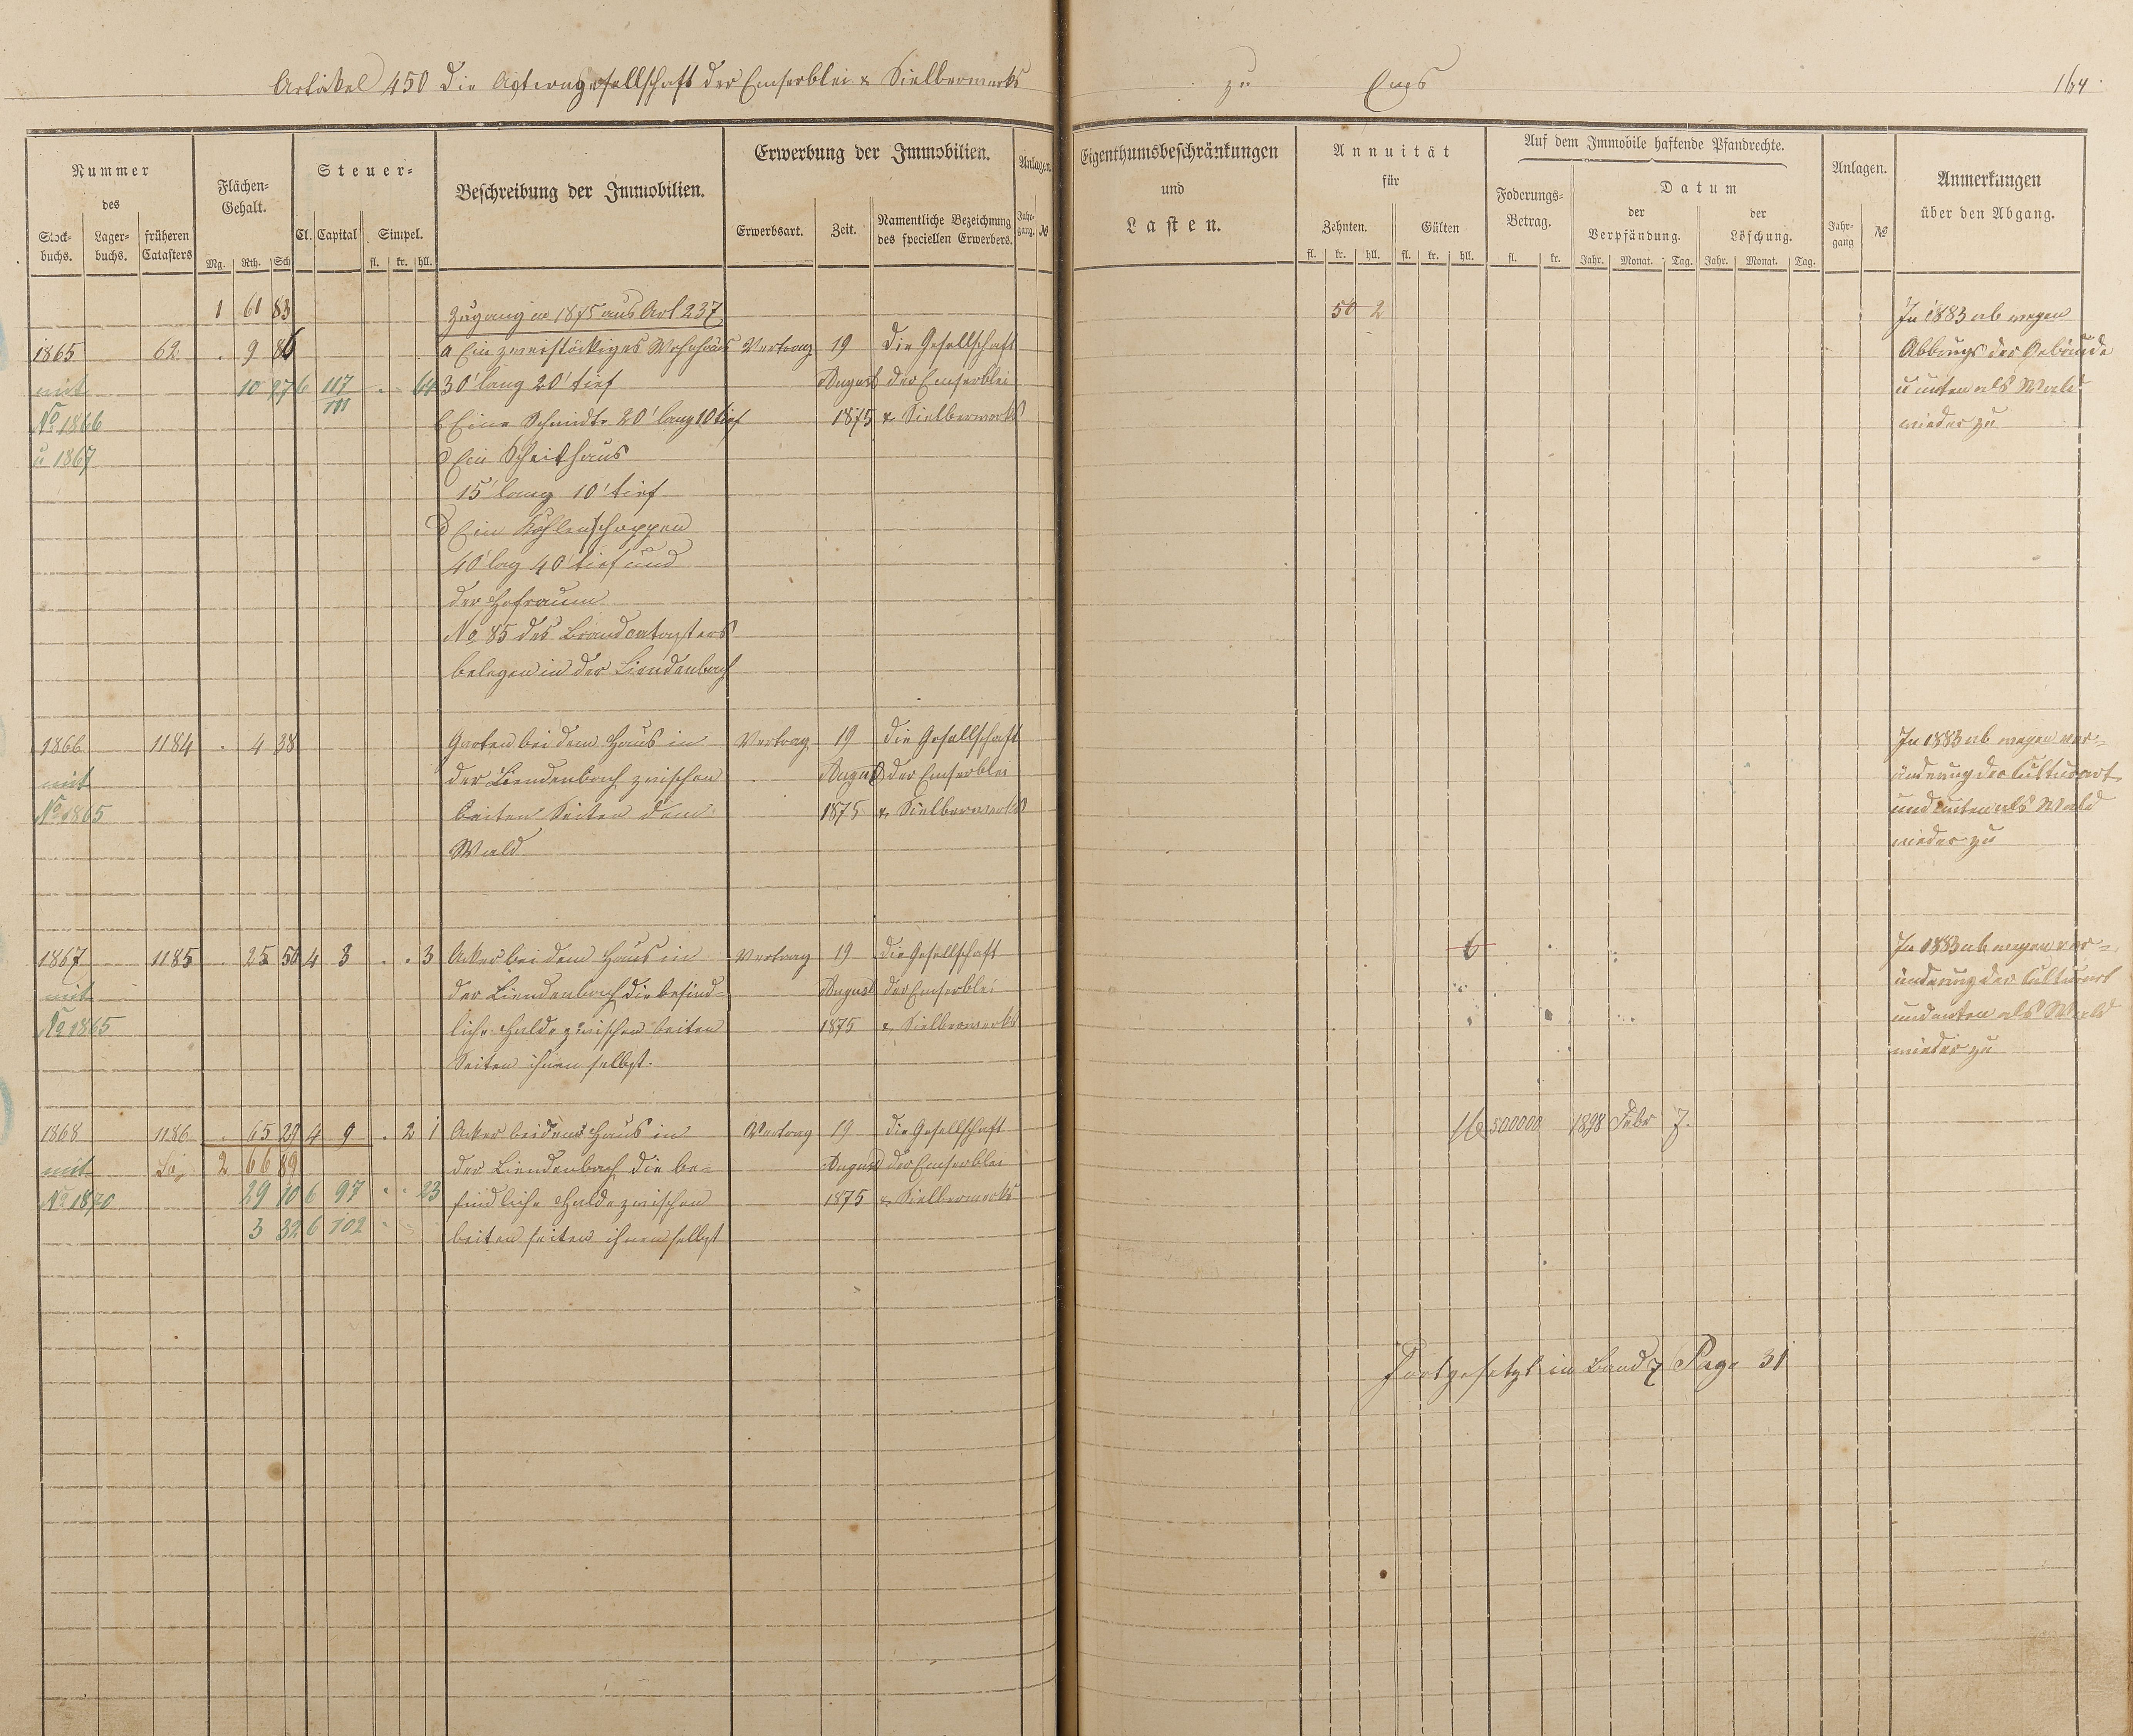 Artikel 450 Die Actiengesellschaft der Emserblei & Sielberwerks zu Ems 164
Nummer
des
Stock-
buchs.
Lager-
buchs.
früheren
Catasters
Flächen-
Gehalt.
Mg. Rth. Sch
Steuer-
Cl. Capital Simpel.
fl. kr. hll.
Beschreibung der Immobilien.
Erwerbung der Immobilien.
Erwerbsart. Zeit.
Namentliche Bezeichnung
des speciellen Erwerbers.
Anlagen.
Jahr-
gang. №
Eigenthumsbeschränkungen
und
Lasten.
Annuität
für
Zehnten. Gülten
fl. kr. hll. fl. kr. hll.
Auf dem Immobile haftende Pfandrechte.
Foderungs-
Betrag.
fl. kr.
Datum
der
Verpfändung.
der
Löschung.
Jahr. Monat. Tag. Jahr. Monat. Tag.
Anlagen.
Jahr-
gang №
Anmerkungen
über den Abgang.
1 61 83 Zugang in 1875 aus Art 237 50 2 In 1883 ab wegen
1865 62 . 9 86 a Ein zweistöckiges Wohnhaus Vertrag 19 Die Gesellschaft Abbruchs der Gebäude
mit 10 27 6 117 . . 64 30' lang 20' tief August der Emserblei u unten als Wald
111
No 1866 Eine Schmidte 20' lang 10 tief 1875 & Sielberwerks wieder zu
u 1867 Ein Scheithaus
15' lang 10' tief
d Ein Kohlenschoppen
40' lag 40' tief und
der Hofraum
No 85 des Brandcatasters
belegen in der Liendenbach
1866 1184 . 4 38 Garten bei dem Haus in Vertrag 19 Die Gesellschaft In 1883 ab wegen ver-
mit der Liendenbach zwischen August der Emserblei änderung der Culturart
No 1865 beiten Seiten dem 1875 & Sielberwerks und unten als Wald
Wald wieder zu
1867 1185 . 25 50 4 3 . . 3 Acker bei dem Haus in Vertrag 19 die Gesellschaft 6 In 1883 ab wegen ver-
mit der Liendenbach die befind- August der Emserblei änderung der Culturart
No 1865 liche Halde zwischen beiten 1875 & Sielberwerks und unten als Wald
Seiten ihnen selbst. wieder zu
1868 1186 . 65 29 4 9 . 2 1 Acker bei dem Haus in Vertrag 19 die Gesellschaft 16 500000 1898 Febr 7.
mit Sa, 2 66 89 der Liendenbach die be- August der Emserblei
No 1870 29 10 6 97 . . 23 findliche Halde zwischen 1875 & Sielberwerks
3 32 6 102 beiten seiten ihnen selbst
Fortgesetzt in Band 7 Page 31